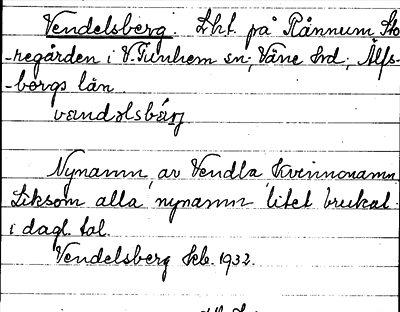 Vendelsberg. Lht. på Rånnum Sto-
-regården i V. Tunhem sn; Väne hrd; Älfs-
-borgs län.
Nynamn av Vendla kvinnonamn.
Liksom alla nynamn litet brukat
i dagl. tal.
Vendelsberg kb. 1932.